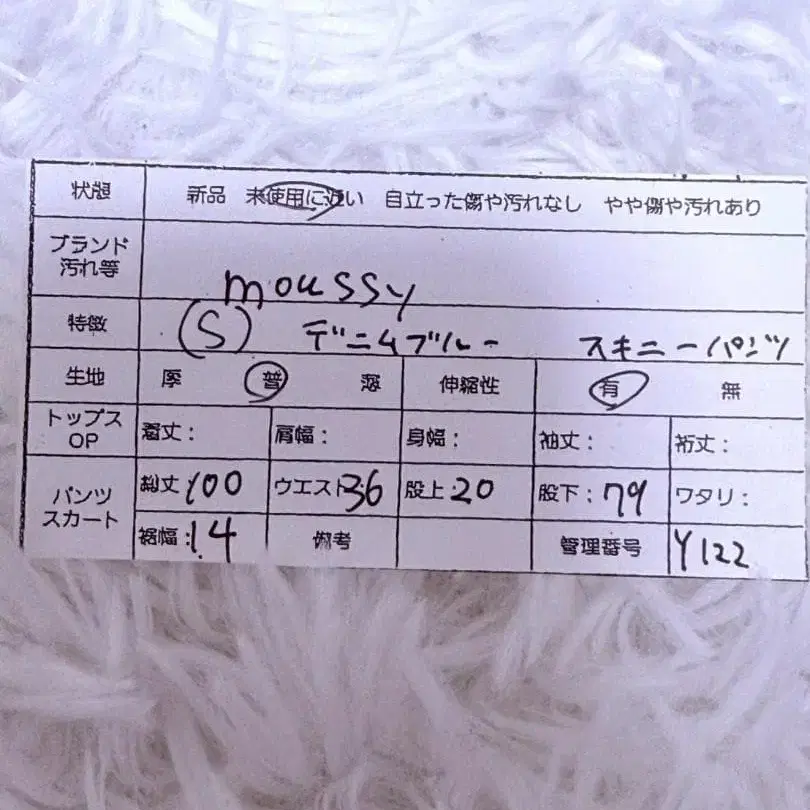 状態 新品 未使用に近い 目立った傷や汚れなし やや傷や汚れあり
ブランド
汚れ等
moussy
特徴 (S) デニムブルー スキニーパンツ
生地 厚 普 薄 伸縮性 有 無
トップス
OP
着丈: 肩幅: 身幅: 袖丈: 裄丈:
パンツ
スカート
総丈 100 ウエスト 36 股上: 20 股下: 79 ワタリ:
裾幅: 14 備考 管理番号 Y122